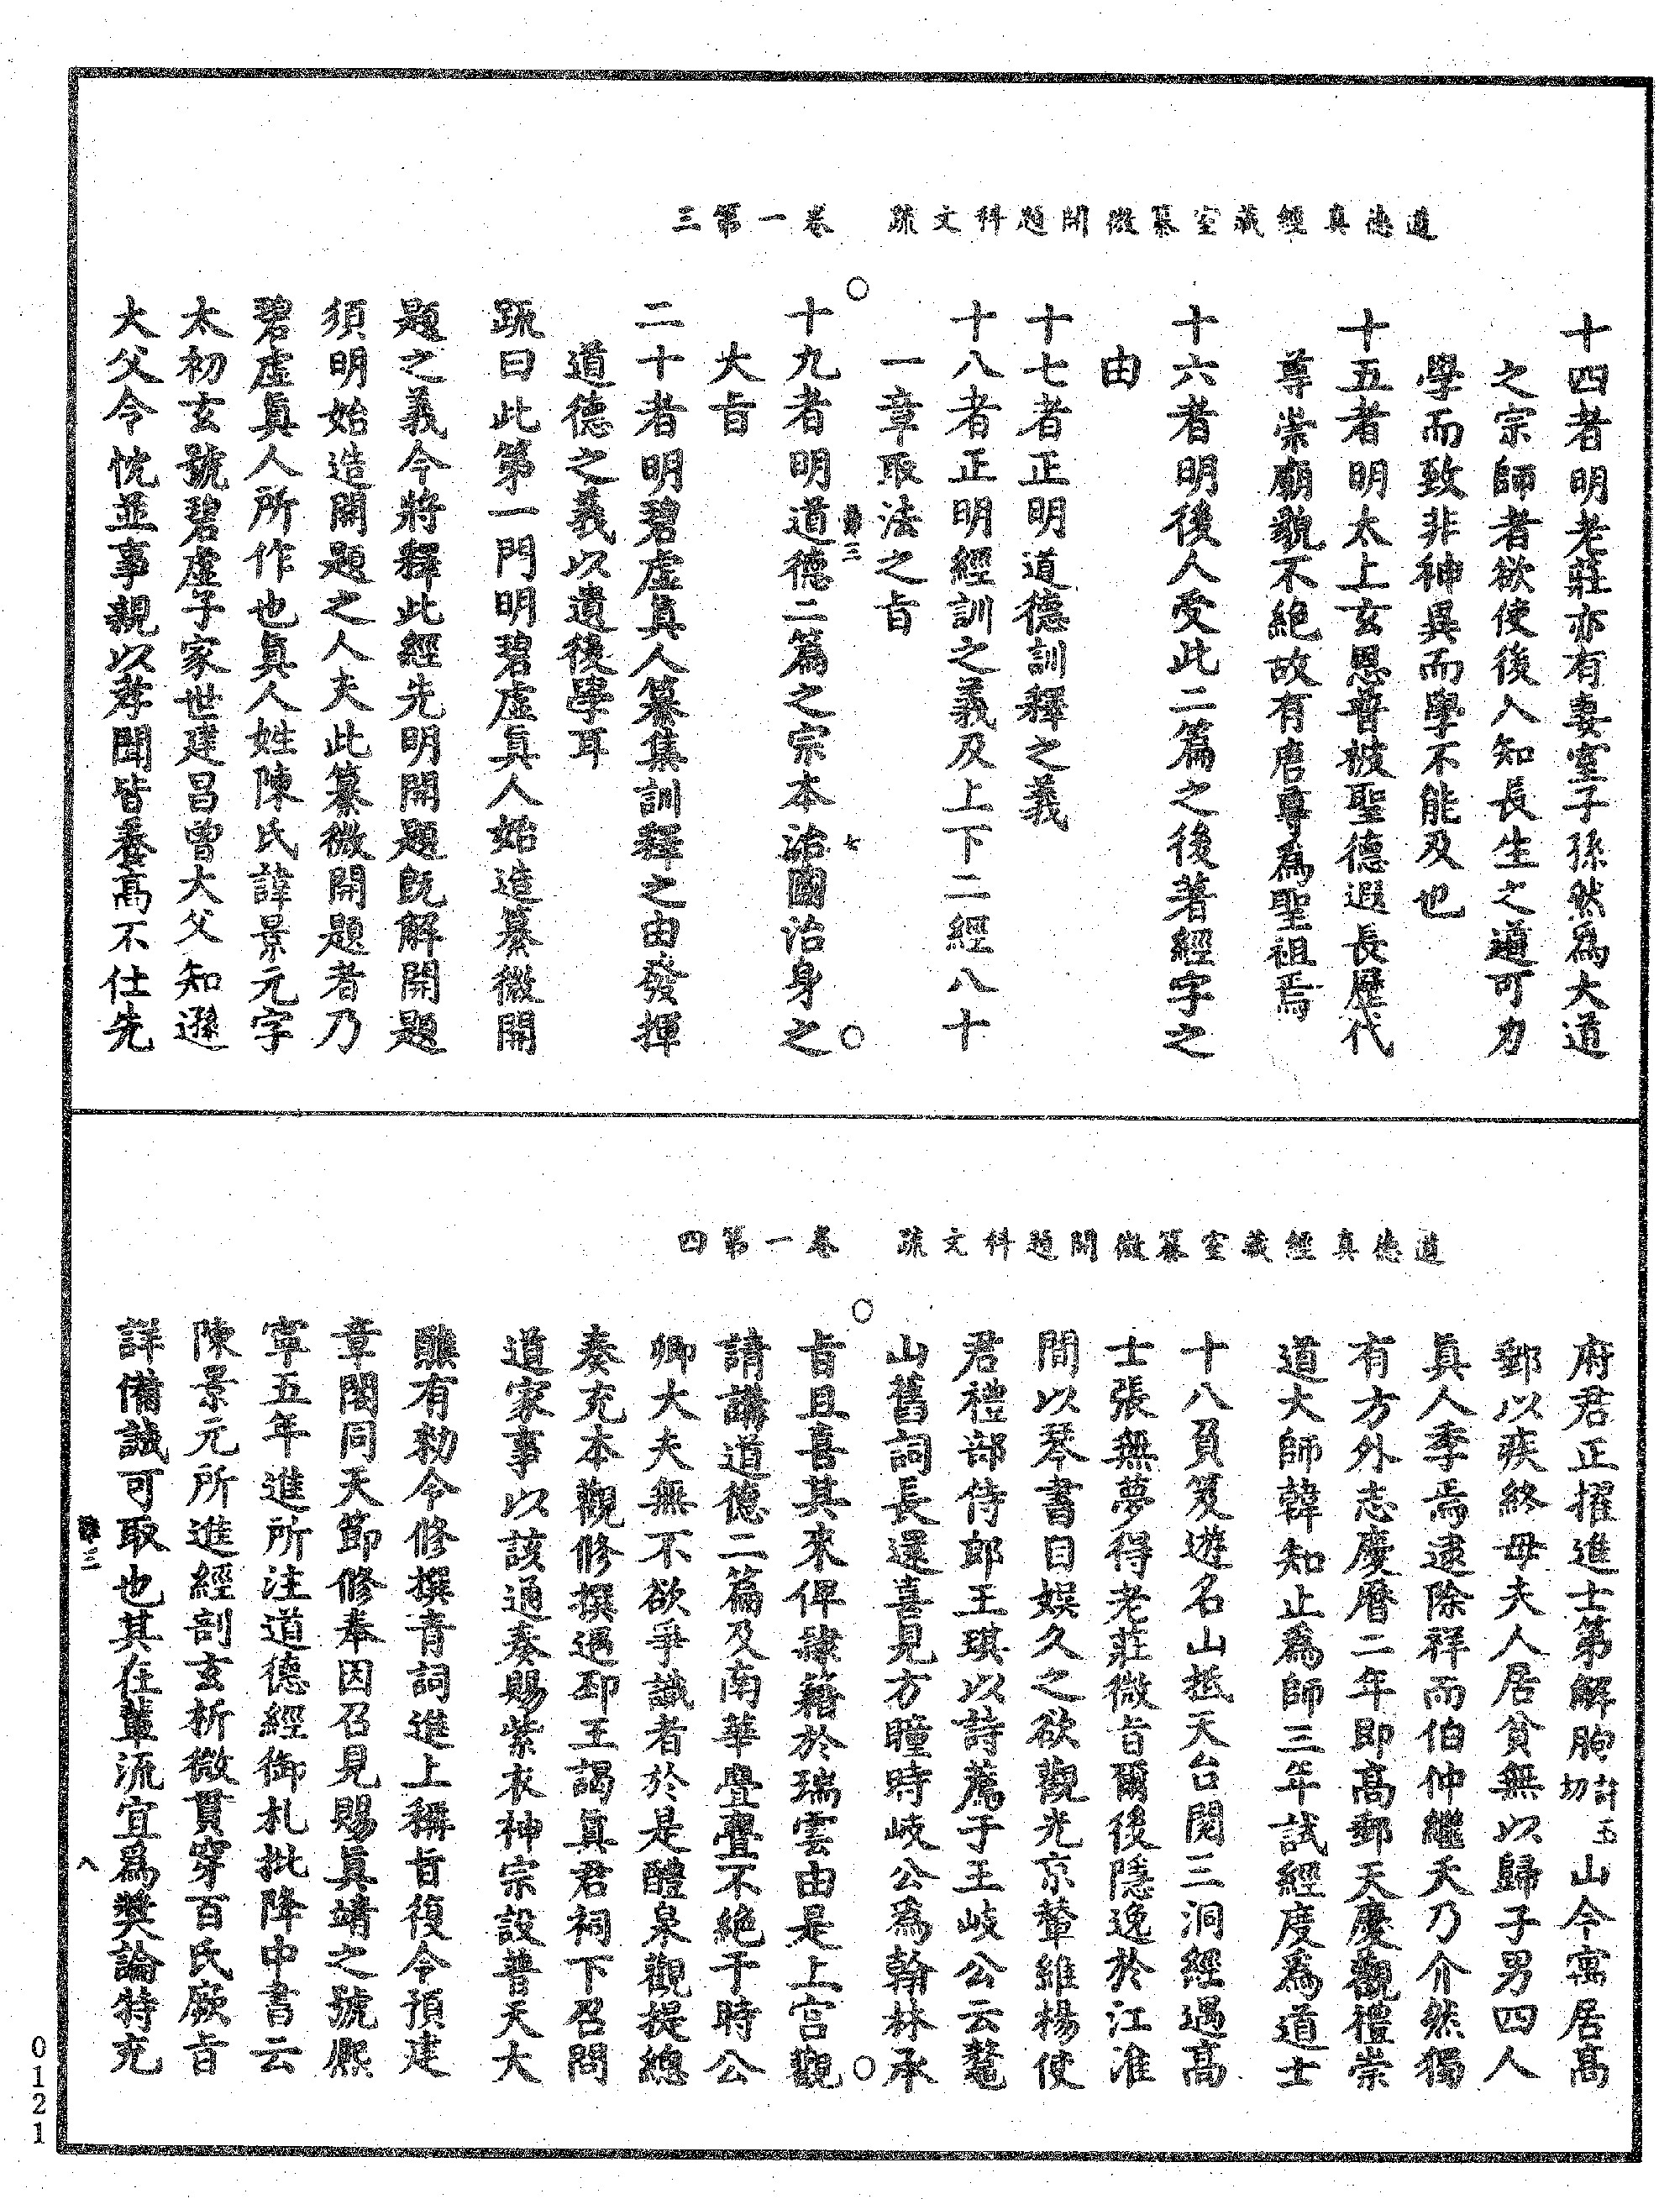 道德真經藏室纂微開題科文疏　卷一第三
十四者明老莊亦有妻室子孫然爲大道
之宗師者欲使後人知長生之道可力
學而致非神異而學不能及也
十五者明太上玄恩普被聖德遐長歷代
尊崇廟貌不絕故有唐尊爲聖祖焉
十六者明後人受此二篇之後著經字之
由
十七者正明道德訓釋之義
十八者正明經訓之義及上下二經八十
一章取法之旨
三
七
十九者明道德二篇之宗本治國治身之
大旨
二十者明碧虛真人纂集訓釋之由發揮
道德之義以遺後學耳
疏曰此第一門明碧虛真人始造纂微開
題之義今將釋此經先明開題旣解開題
須明始造開題之人夫此纂微開題者乃
碧虛眞人所作也眞人姓陳氏諱景元字
太初玄號碧虛子家世建昌曾大父知遜
大父令忱並事親以孝聞皆養高不仕先
道德真經藏室纂微開題科文疏　卷一第四
府君正擢進士第解朐山今寓居高
郵以疾終母夫人居貧無以歸子男四人
眞人季焉逮除祥而伯仲繼夭乃介然獨
有方外志慶曆二年即高郵天慶觀禮崇
道大師韓知止爲師三年試經度爲道士
十八負笈遊名山抵天台閱三洞經遇高
士張無夢得老莊微旨爾後隱逸於江淮
間以琴書自娛久之欲觀光京輦維楊使
君禮部侍郎王琪以詩薦于王岐公云鼇
山舊詞長還喜見方瞳時岐公爲翰林承
旨且喜其來俾隸籍於瑞雲由是上宮觀
請講道德二篇及南華亹亹不絕于時公
卿大夫無不欲爭識者於是醴泉觀提總
奏充本觀修撰遇邳王謁眞君祠下召問
道家事以該通奏賜紫衣神宗設普天大
醮有勑令修撰青詞進上稱旨復令預建
章閣同天節修奉因召見賜眞靖之號熈
寧五年進所注道德經御札批降中書云
陳景元所進經剖玄析微貫穿百氏厥旨
詳備誠可取也其在輩流宜爲奬論特充
三
八
0121